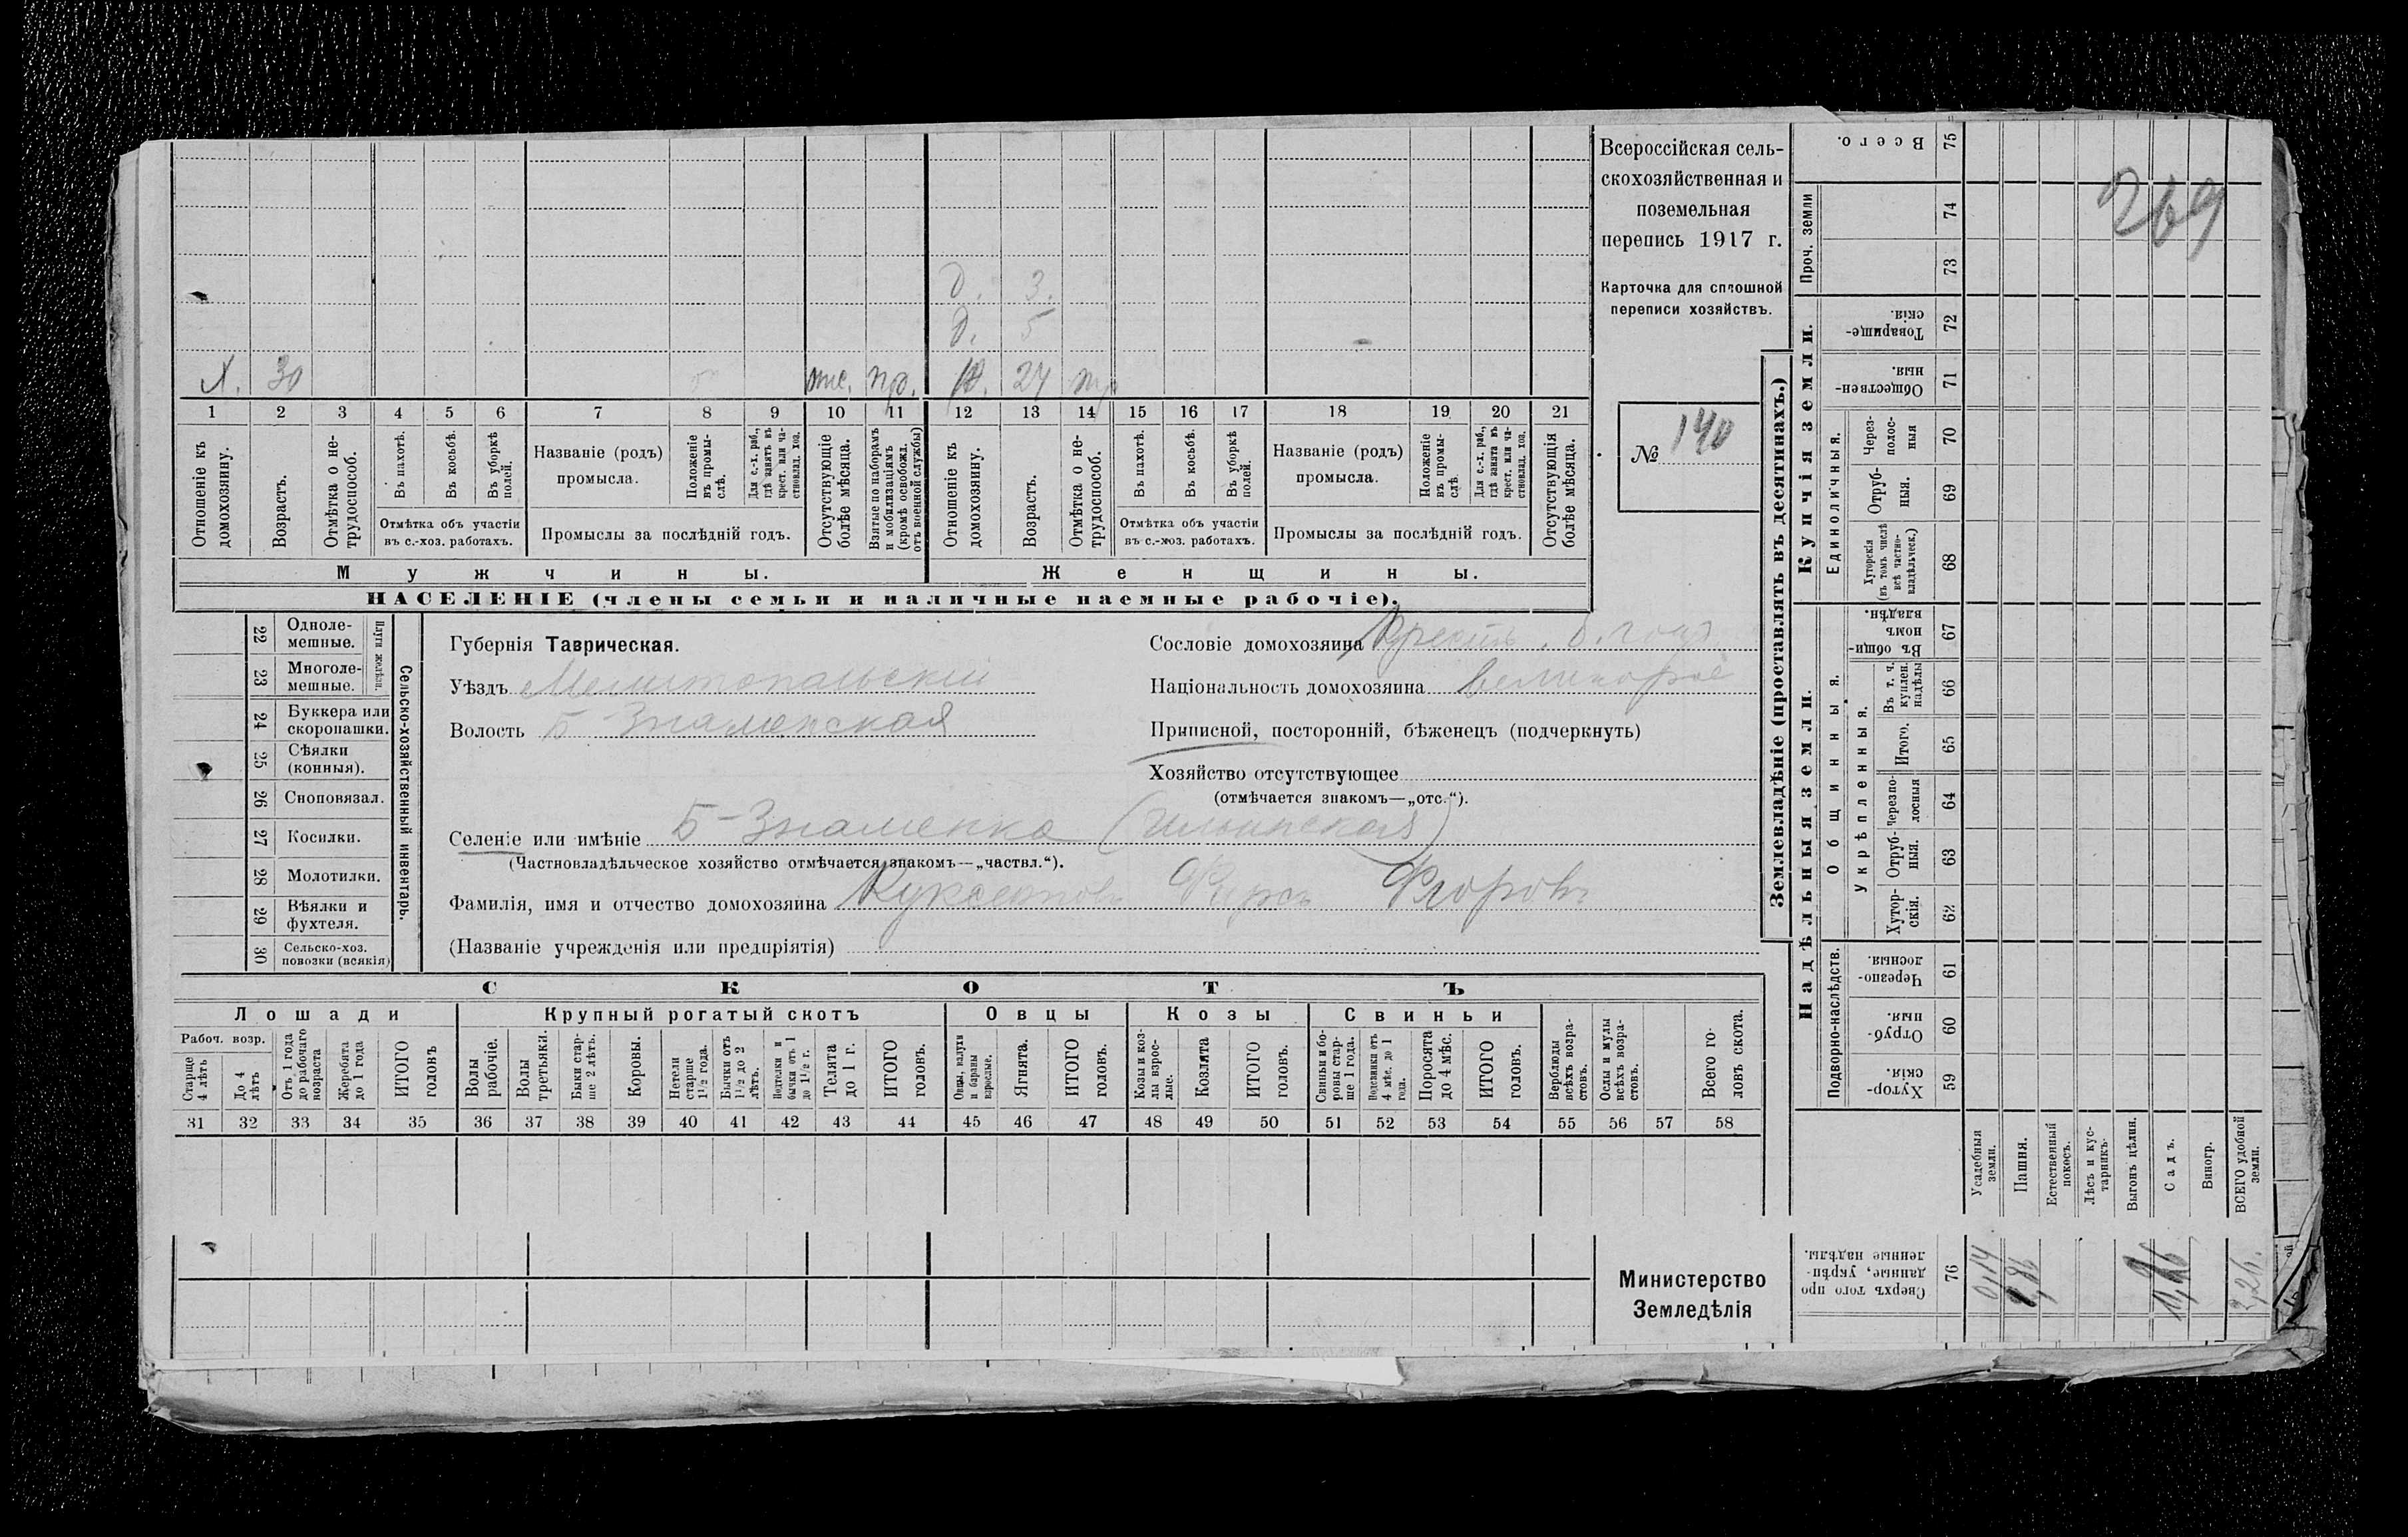 Всероссійская сель-
скохозяйственная и
поземельная
перепись 1917 г.
Карточка для сплошной
переписи хозяйствъ.
№ 140
269
д. 3.
д. 5
Х. 30 отс. пр. Ж. 24
1 2 3 4 5 6 7 8 9 10 11 12 13 14 15 16 17 18 19 20 21
Отношеніе къ домохозяину.
Возрастъ.
Отмѣтка о не-трудоспособ.
Въ пахотѣ.
Въ косьбѣ.
Въ уборкѣ полей.
Отмѣтка объ участіи
въ с.-хоз. работахъ.
Названіе (родъ)
промысла.
Положеніе въ промы-слѣ.
Для с.-х. раб., гдѣ занятъ въ крест. или ча-стновлад. хоз.
Промыслы за послѣдній годъ.
Отсутствующіе болѣе мѣсяца.
Взятые по наборамъ и мобилизаціямъ (кромѣ освобожд. отъ военной службы)
Отношеніе къ домохозяину.
Возрастъ.
Отмѣтка о не-трудоспособ.
Въ пахотѣ.
Въ косьбѣ.
Въ уборкѣ полей.
Отмѣтка объ участіи
въ с.-хоз. работахъ.
Названіе (родъ)
промысла.
Положеніе въ промы-слѣ.
Для с.-х. раб., гдѣ занята въ крест. или ча-стновлад. хоз.
Промыслы за послѣдній годъ.
Отсутствующія болѣе мѣсяца.
Мужчины.
Женщины.
НАСЕЛЕНІЕ (члены семьи и наличные наемные рабочіе).
22 Одноле-мешные.
23 Многоле-мешные.
Плуги желѣзн.
24 Буккера или скоропашки.
25 Сѣялки (конныя).
26 Сноповязал.
27 Косилки.
28 Молотилки.
29 Вѣялки и фухтеля.
30 Сельско-хоз. повозки (всякія)
Сельско-хозяйственный инвентарь.
Губернія Таврическая.
Уѣздъ Мелитопольскій
Волость Б-Знаменская
Сословіе домохозяина Крест.
Національность домохозяина великорос
Приписной, посторонній, бѣженецъ (подчеркнуть)
Хозяйство отсутствующее
(отмѣчается знакомъ—„отс.“).
Селеніе или имѣніе Б-Знаменка (Ильинская)
(Частновладѣльческое хозяйство отмѣчается знакомъ—„частвл.“).
Фамилія, имя и отчество домохозяина
(Названіе учрежденія или предпріятія)
СКОТЪ
Лошади
Крупный рогатый скотъ
Овцы
Козы
Свиньи
Рабоч. возр.
Старше 4 лѣтъ
До 4 лѣтъ
Отъ 1 года до рабочаго возраста
Жеребята до 1 года
ИТОГО головъ
Волы рабочіе.
Волы третьяки.
Быки стар-ше 2 лѣтъ.
Коровы.
Нетели старше 1½ года.
Бычки отъ 1½ до 2 лѣтъ.
Подтелки и бычки отъ 1 до 1½ г.
Телята до 1 г.
ИТОГО головъ.
Овцы, валухи и бараны взрослые.
Ягнята.
ИТОГО головъ.
Козы и коз-лы взрос-лые.
Козлята
ИТОГО головъ.
Свиньи и бо-ровы стар-ше 1 года.
Подсвинки отъ 4 мѣс. до 1 года.
Поросята до 4 мѣс.
ИТОГО головъ.
Верблюды всѣхъ возра-стовъ.
Ослы и мулы всѣхъ возра-стовъ.
Всего го-ловъ скота.
31 32 33 34 35 36 37 38 39 40 41 42 43 44 45 46 47 48 49 50 51 52 53 54 55 56 57 58
Министерство
Земледѣлія
Землевладѣніе (проставлять въ десятинахъ.)
Купчія земли.
Надѣльныя земли.
Всего. 75
Проч. земли 74 73
Товарище-скія. 72
Обществен-ныя. 71
Единоличныя.
Через-полос-ныя 70
Отруб-ныя. 69
Хуторскія (въ томъ числѣ всѣ частно-владѣльческ.) 68
Общинныя.
Въ общин-номъ владѣн. 67
Укрѣпленныя.
Въ т. ч. куплен. надѣлы 66
Итого. 65
Черезпо-лосныя 64
Отруб-ныя. 63
Хутор-скія. 62
Подворно-наслѣдств.
Черезпо-лосныя. 61
Отруб-ныя. 60
Хутор-скія. 59
Усадебныя земли.
Пашня.
Естественный покосъ.
Лѣсъ и кус-тарникъ.
Выгонъ цѣлин.
Садъ.
Виногр.
ВСЕГО удобной земли.
Сверхъ того про данные, укрѣп-ленные надѣлы. 76
0,14
0,26
3,26.